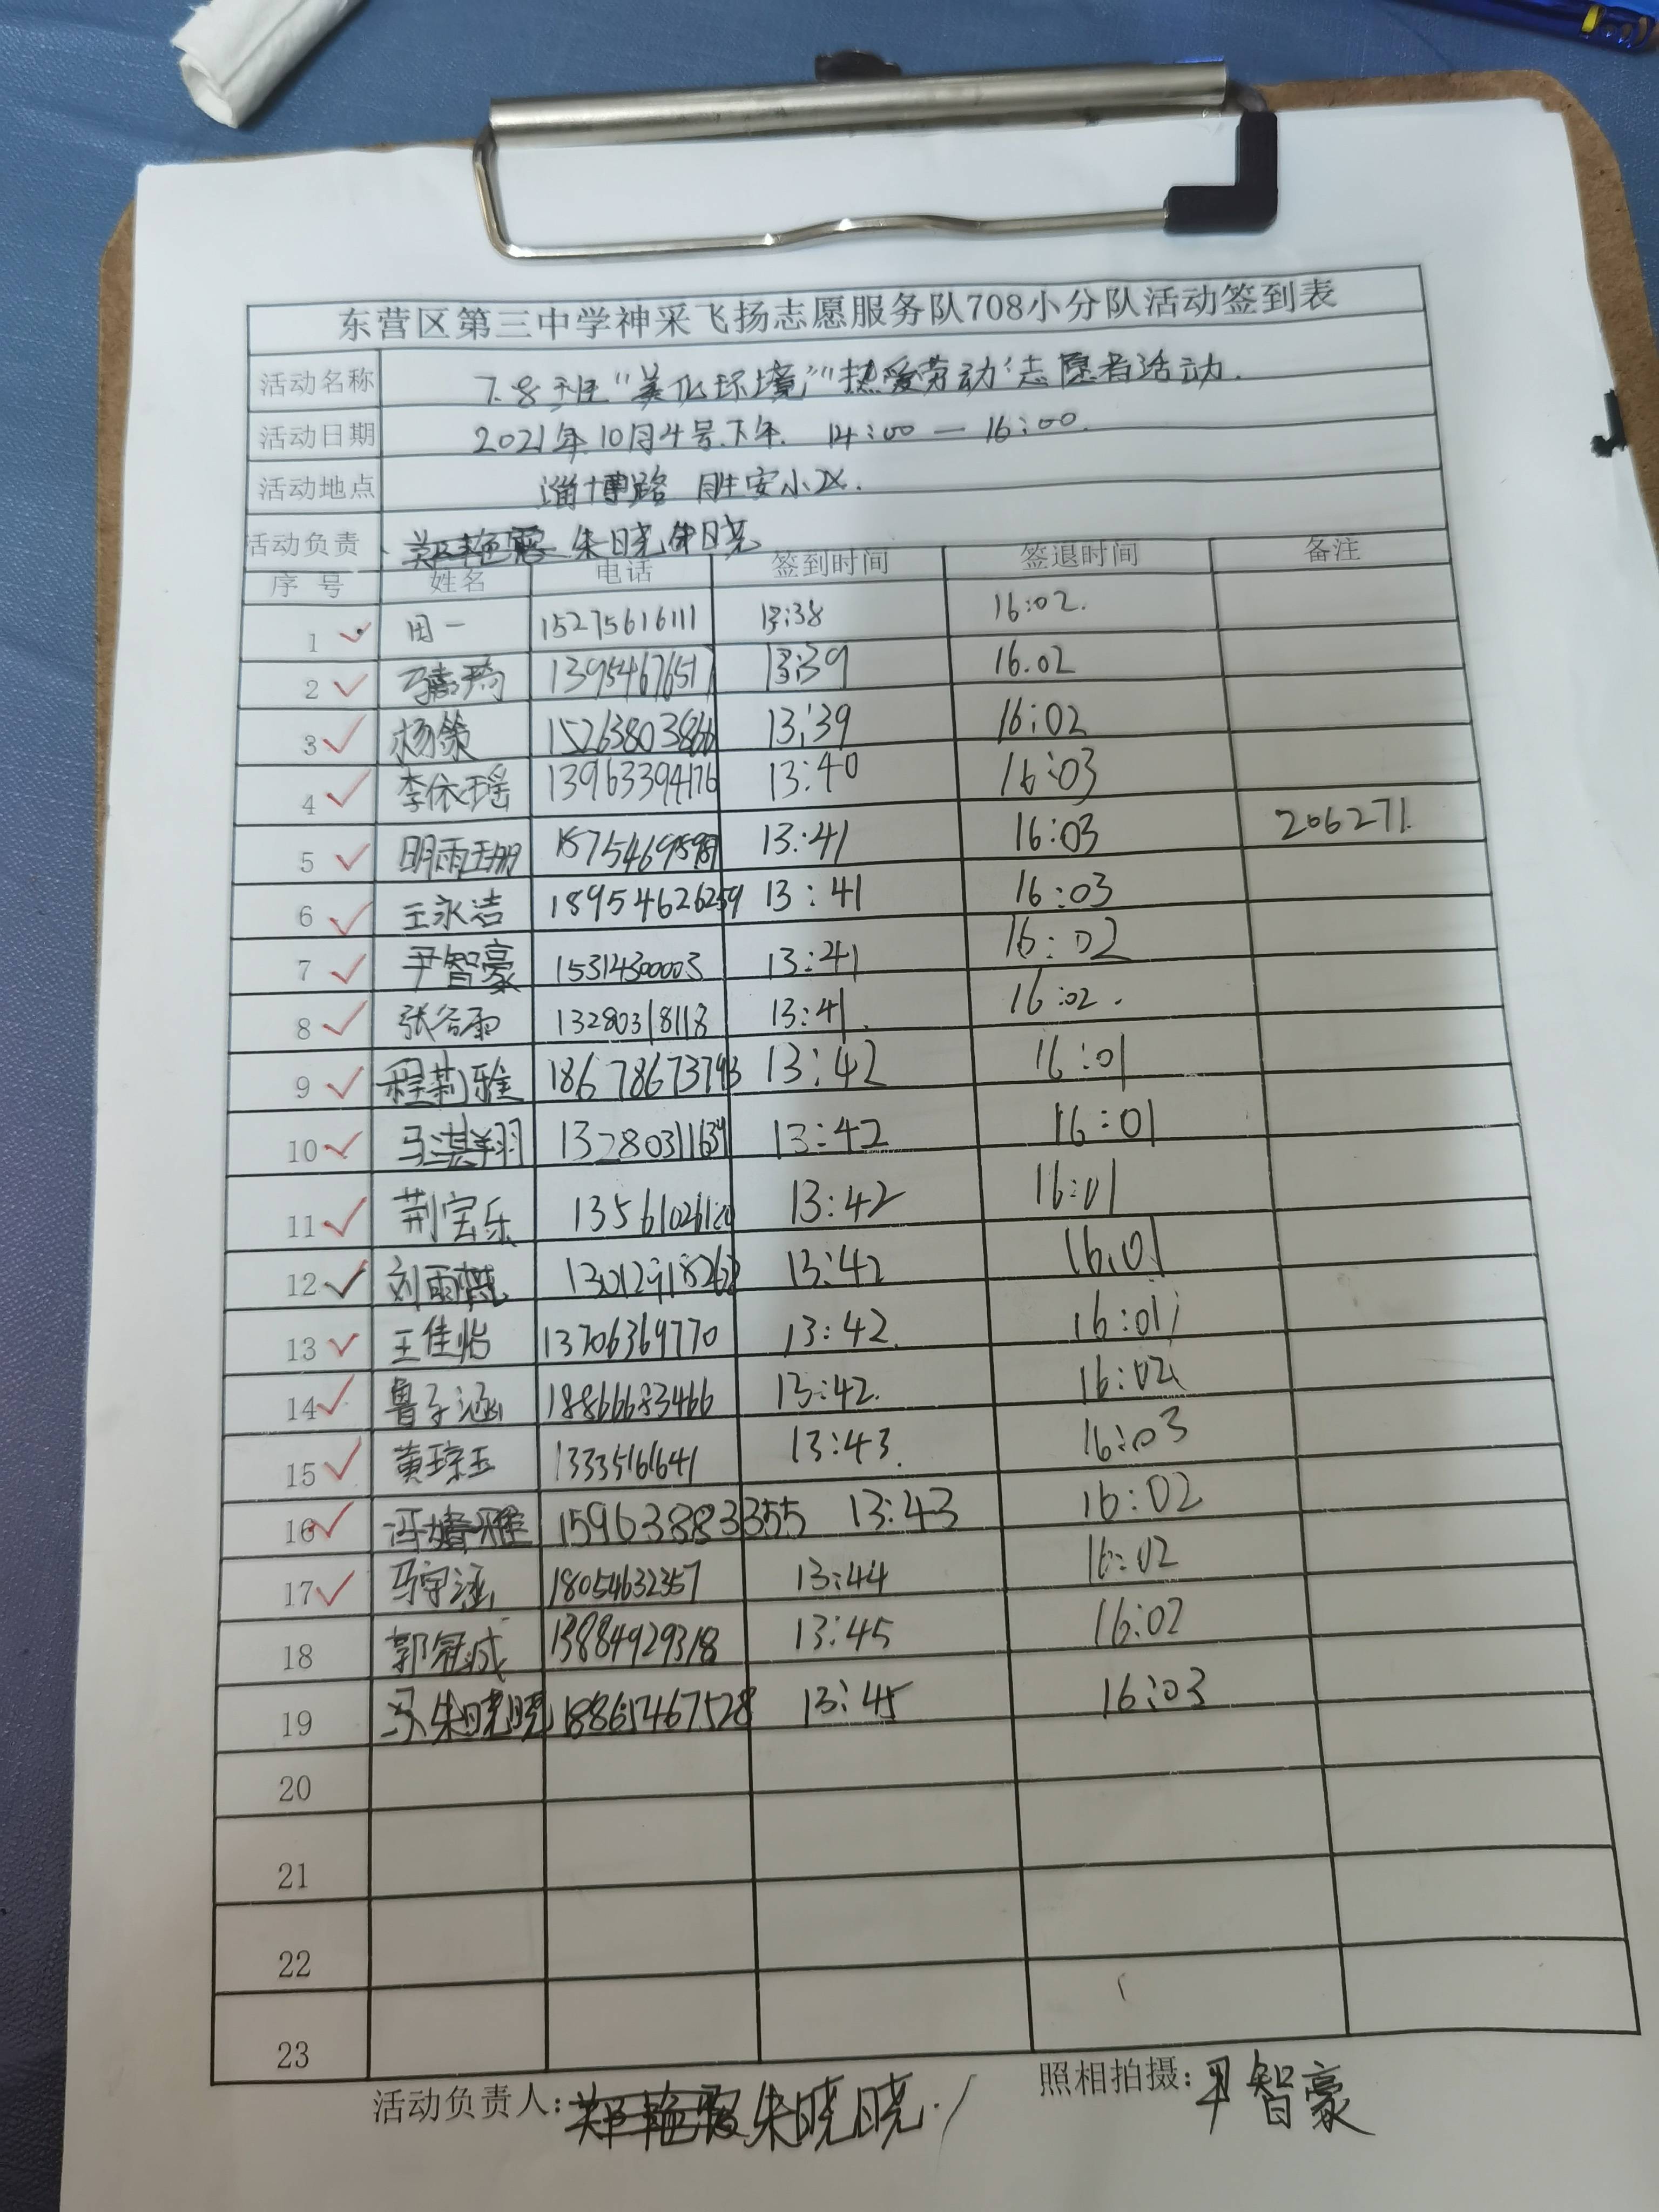 东营区第三中学神采飞扬志愿服务队708小分队活动签到表
活动名称 7.8班"美化环境""热爱劳动"志愿者活动.
活动日期 2021年10月4号.下午. 14:00 — 16:00.
活动地点 淄博路 胜安小区.
活动负责 朱晓晓
序号 姓名 电话 签到时间 签退时间 备注
1 田一 15275616111 13:38 16:02.
2 马嘉琦 13954676517 13:39 16.02
3 杨策 15263803866 13:39 16:02
4 李依瑶 13963394176 13:40 16:03
5 明雨珊 13:41 16:03 206271.
6 王永洁 18954626259 13:41 16:03
7 尹智豪 15314300003 13:41 16:02
8 张谷雨 13280318118 13:41. 16:02.
9 程莉雅 18678673793 13:42 16:01
10 马淇翔 13280311639 13:42 16:01
11 荆宝乐 13561026120 13:42 16:01
12 刘雨 13:42 16.01
13 王佳怡 13706369770 13:42. 16:01
14 鲁子涵 18866683466 13:42. 16:02
15 黄琮玉 13335161641 13:43. 16:03
16 冯婧雅 15963883355 13:43 16:02
17 马宇涵 18054632357 13:44 16:02
18 郭冠成 13884929318 13:45 16:02
19 朱晓晓 18865467528 13:45 16:03
20
21
22
23
活动负责人: 朱晓晓. 照相拍摄: 尹智豪